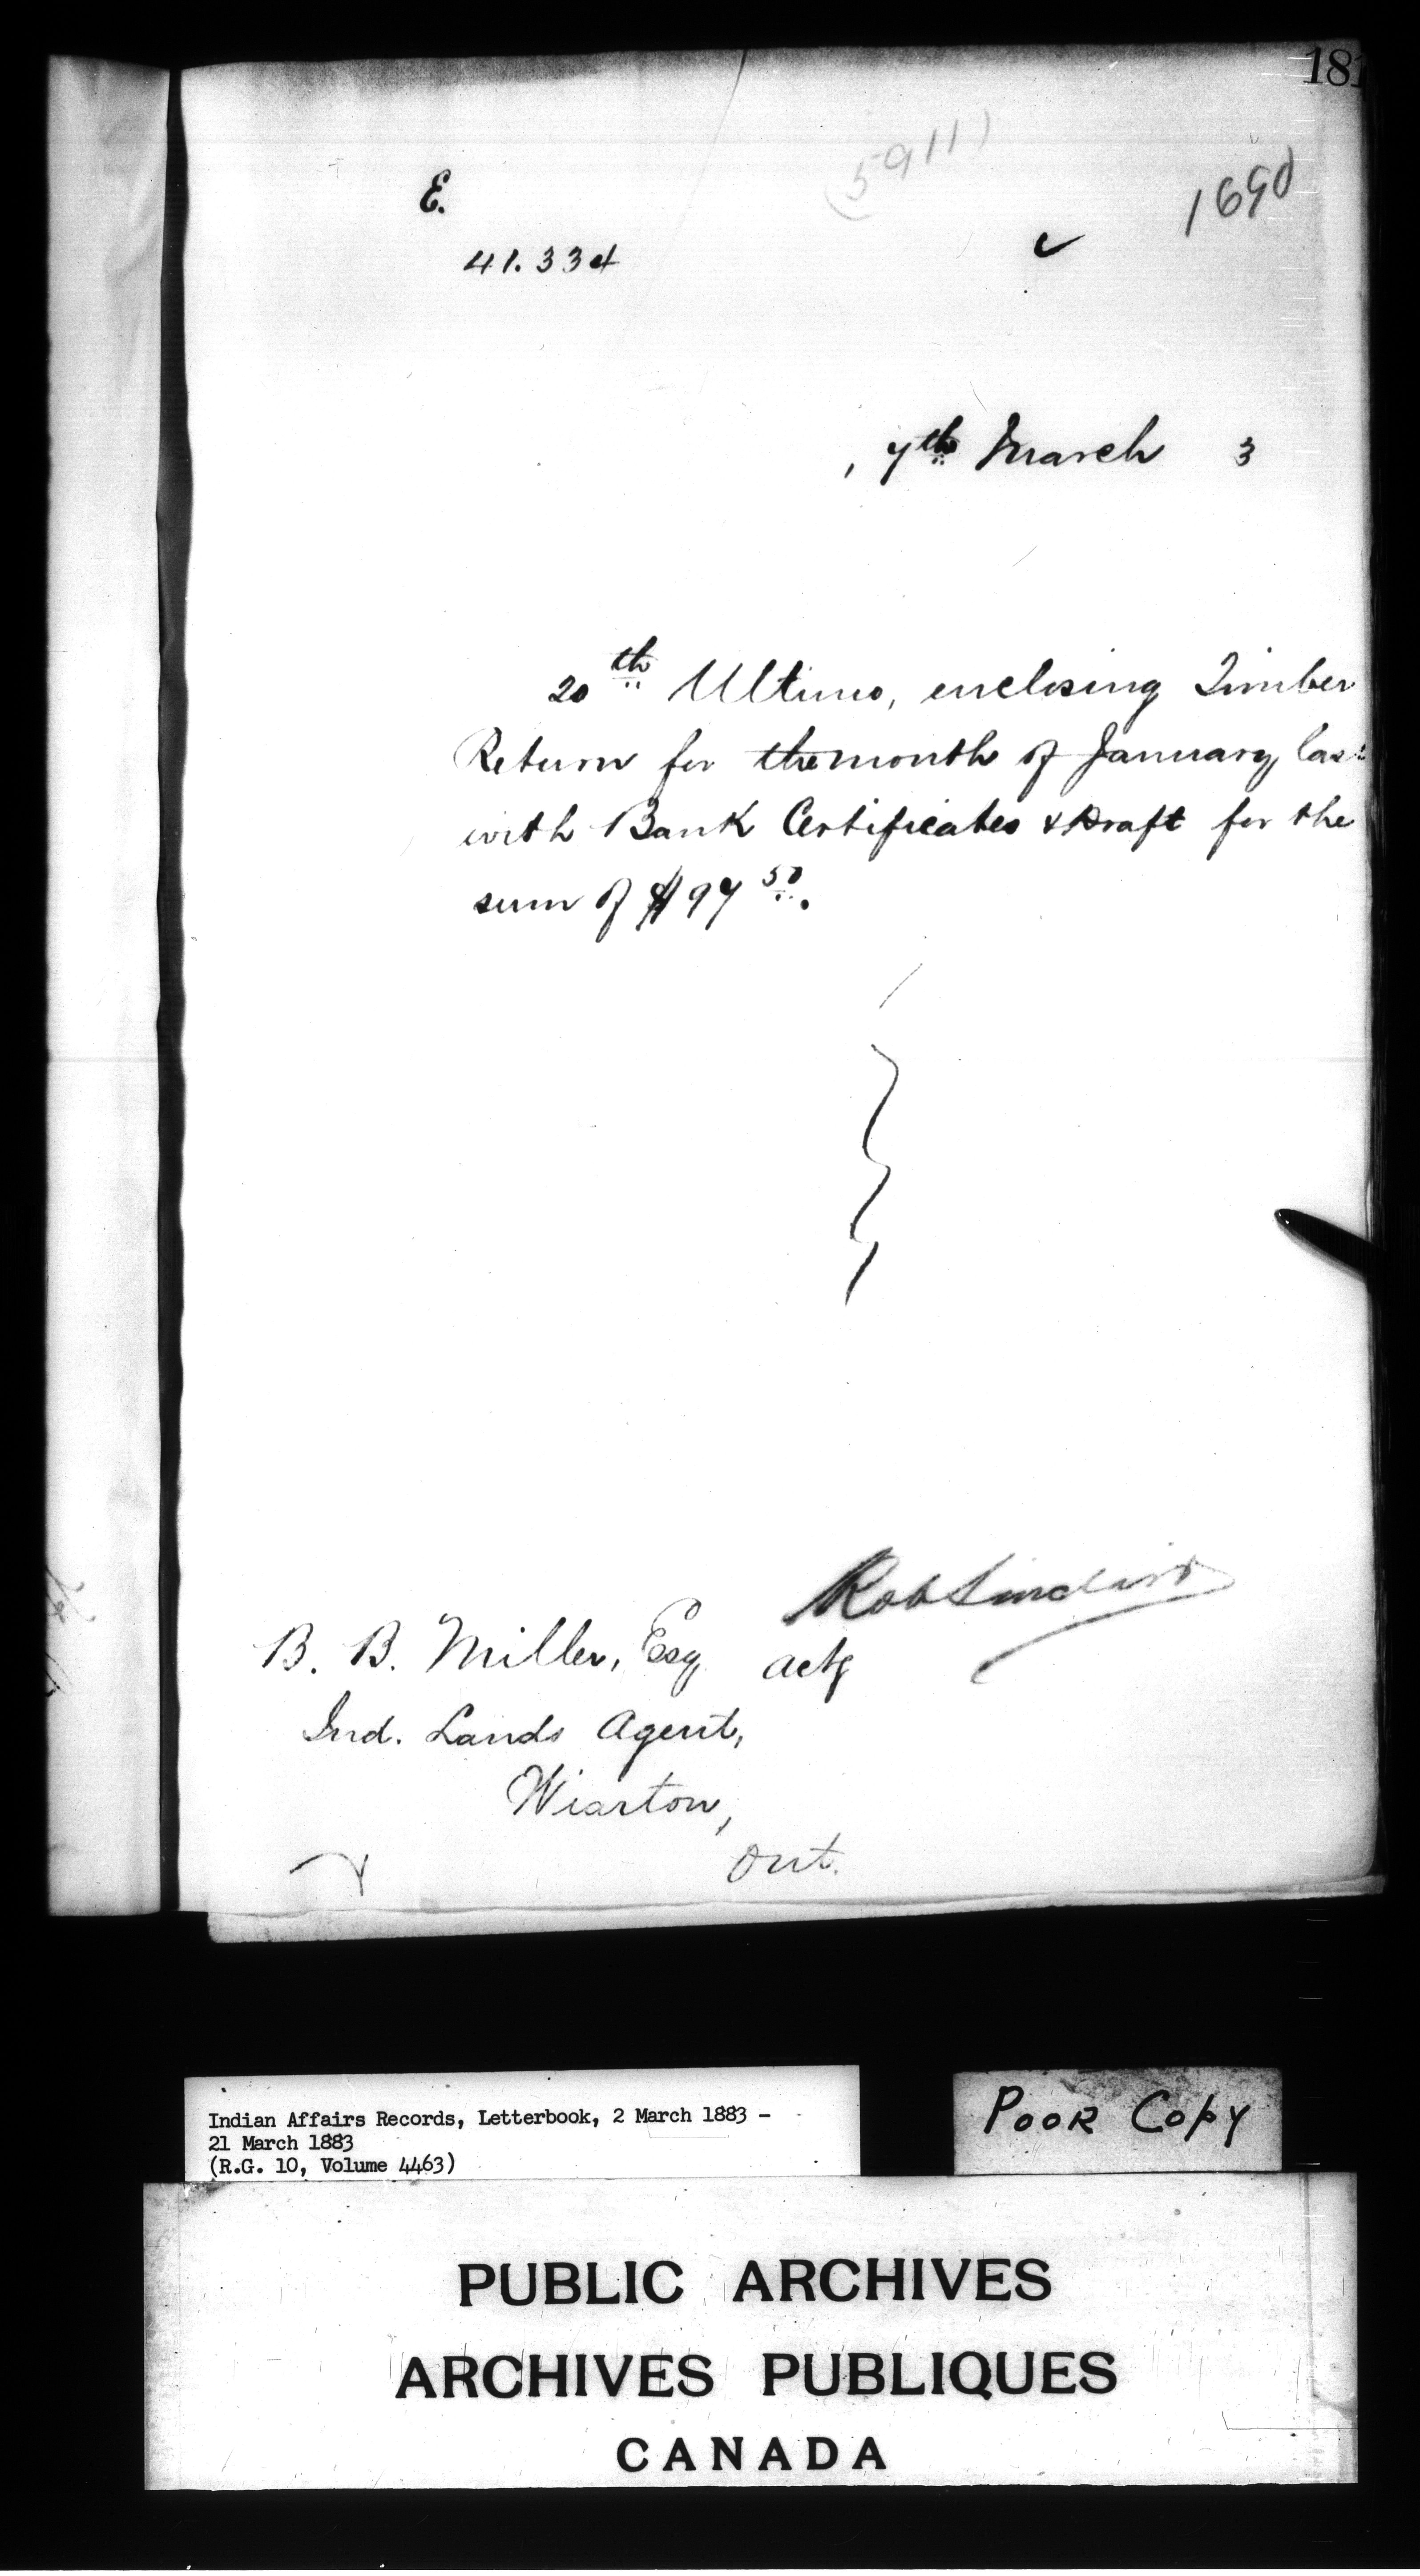 181
(5911)
1690
E.
41.334
, 7th March 3
20th Ultimo, enclosing Timber
Return for the month of January las
with Bank Certificates & Draft for the
sum of $97 50.
Rob Sinclair
B. B. Miller, Esq actg
Ind. Lands Agent,
Wiarton,
Ont.
Indian Affairs Records, Letterbook, 2 March 1883 -
21 March 1883
(R.G. 10, Volume 4463)
POOR COPY
PUBLIC ARCHIVES
ARCHIVES PUBLIQUES
CANADA